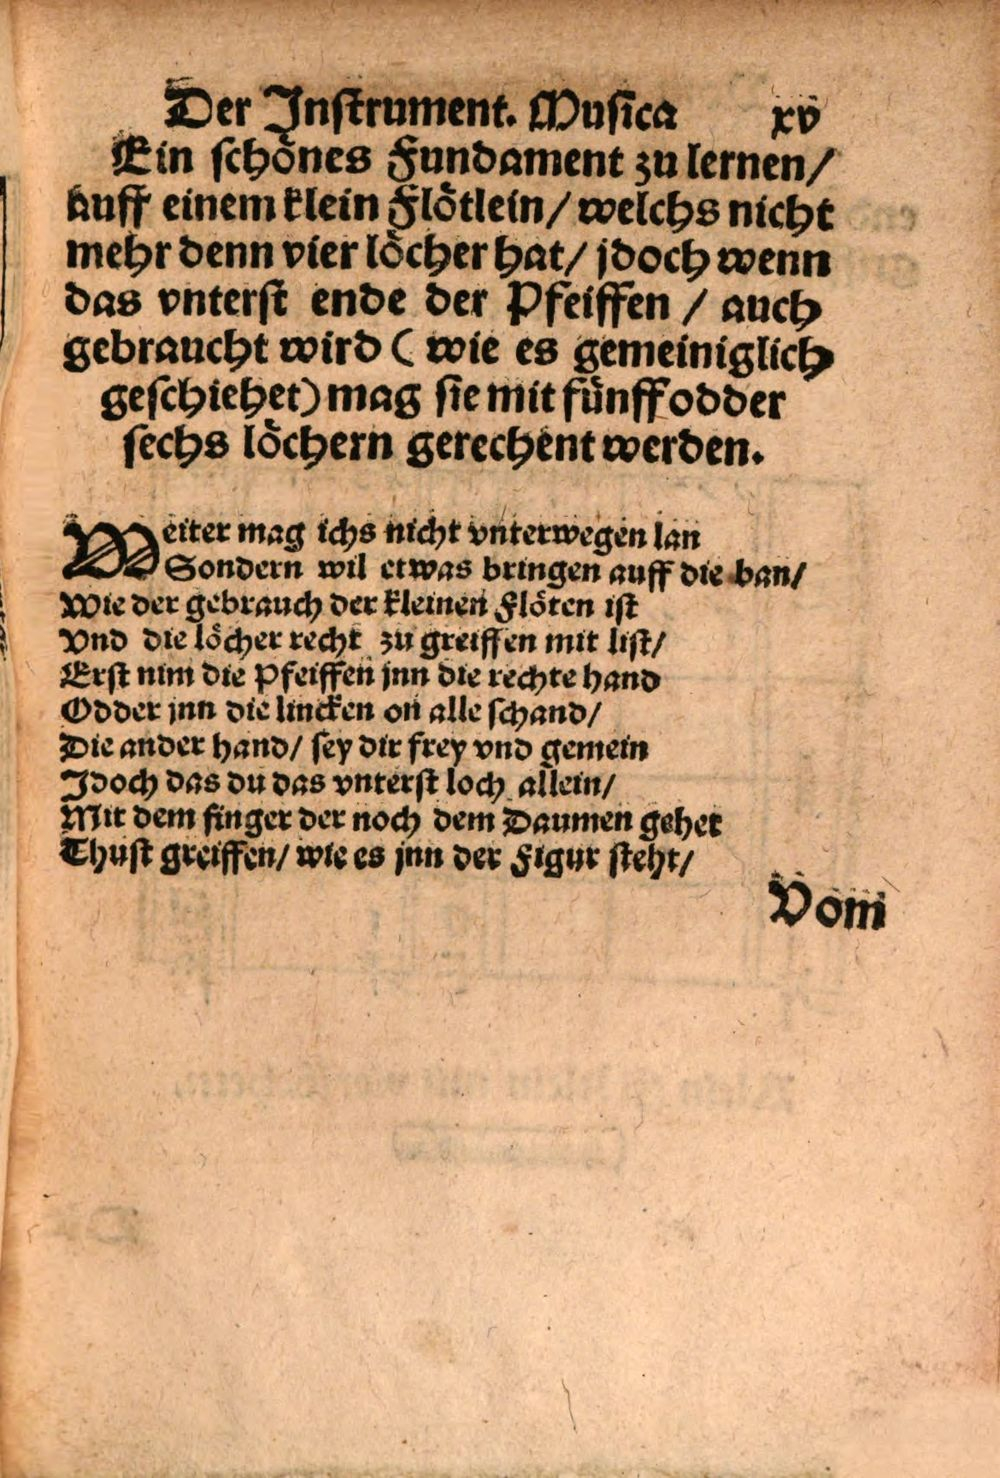 Der Inſtrument. Muſica xv
Ein ſchoͤnes Fundament zu lernen/
auff einem klein Floͤtlein/ welchs nicht
mehr denn vier loͤcher hat/ jdoch wenn
das vnterſt ende der Pfeiffen / auch
gebraucht wird ( wie es gemeiniglich
geſchiehet) mag ſie mit fuͤnff odder
ſechs loͤchern gerechent werden.
Weiter mag ichs nicht vnterwegen lan
Sondern wil etwas bringen auff die ban/
Wie der gebrauch der kleinen Floͤten iſt
Vnd die loͤcher recht zu greiffen mit liſt/
Erſt nim die Pfeiffen jnn die rechte hand
Odder jnn die lincken on alle ſchand/
Die ander hand/ ſey dir frey vnd gemein
Jdoch das du das vnterſt loch allein/
Mit dem finger der noch dem Daumen gehet
Thuſt greiffen/ wie es jnn der Figur ſteht/
Vom